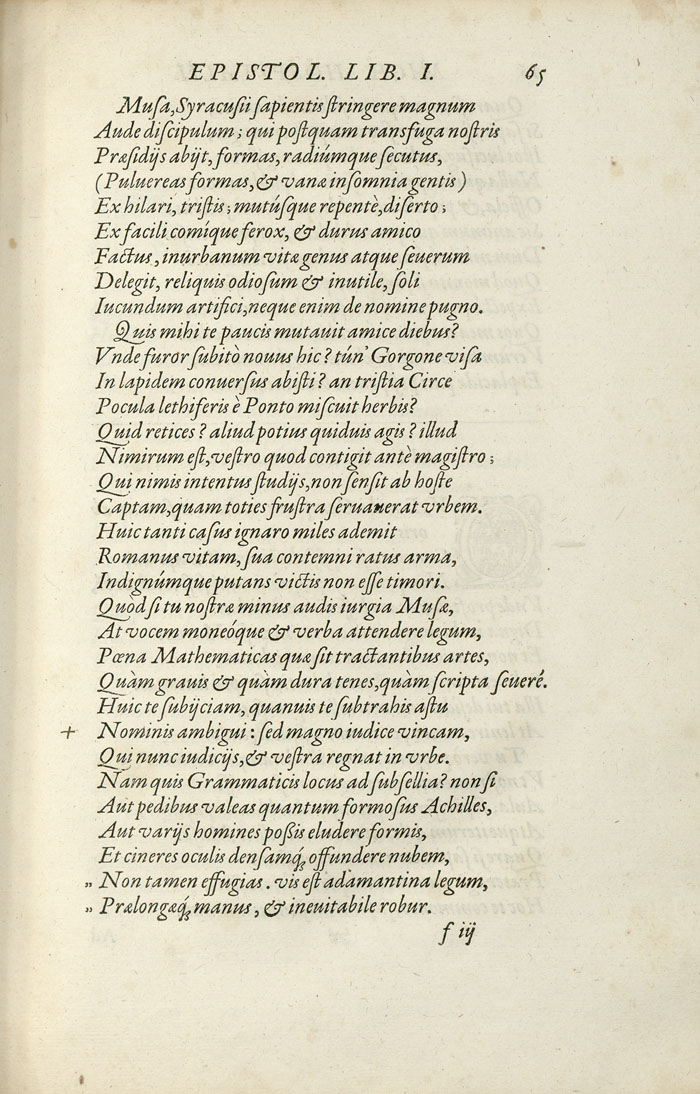 EPISTOL. LIB. I. 65
Musa, Syracusii sapientis stringere magnum
Aude discipulum; qui postquam transfuga nostris
Præsidijs abijt, formas, radiúmque secutus,
(Puluereas formas, & vanæ insomnia gentis)
Ex hilari, tristis; mutúsque repentè, diserto;
Ex facili comíque ferox, & durus amico
Factus, inurbanum vitæ genus atque seuerum
Delegit, reliquis odiosum & inutile, soli
Iucundum artifici, neque enim de nomine pugno.
Quis mihi te paucis mutauit amice diebus?
Vnde furor subitò nouus hic? tún' Gorgone visa
In lapidem conuersus abisti? an tristia Circe
Pocula lethiferis è Ponto miscuit herbis?
Quid retices? aliud potius quiduis agis? illud
Nimirum est, vestro quod contigit antè magistro;
Qui nimis intentus studijs, non sensit ab hoste
Captam, quam toties frustra seruauerat vrbem.
Huic tanti casus ignaro miles ademit
Romanus vitam, sua contemni ratus arma,
Indignúmque putans victis non esse timori.
Quòd si tu nostræ minus audis iurgia Musæ,
At vocem moneóque & verba attendere legum,
Pœna Mathematicas quæ sit tractantibus artes,
Quàm grauis & quàm dura tenes, quàm scripta seueré.
Huic te subijciam, quanuis te subtrahis astu
+ Nominis ambigui: sed magno iudice vincam,
Qui nunc iudicijs, & vestra regnat in vrbe.
Nam quis Grammaticis locus ad subsellia? non si
Aut pedibus valeas quantum formosus Achilles,
Aut varijs homines poßis eludere formis,
Et cineres oculis densamq́; offundere nubem,
" Non tamen effugias. vis est adamantina legum,
" Prælongæq́; manus, & ineuitabile robur.
f iij